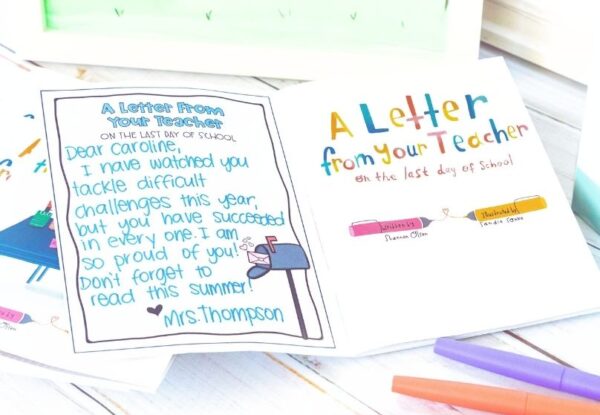 A Letter From
Your Teacher
ON THE LAST DAY OF SCHOOL
Dear Caroline,
I have watched you
tackle difficult
challenges this year,
but you have succeeded
in every one. I am
so proud of you!
Don't forget to
read this summer!
Mrs. Thompson
A Letter
from Your Teacher
on the last day of School
written by
Shannon Olsen
Illustrated by
Sandie Sonke
Olsen